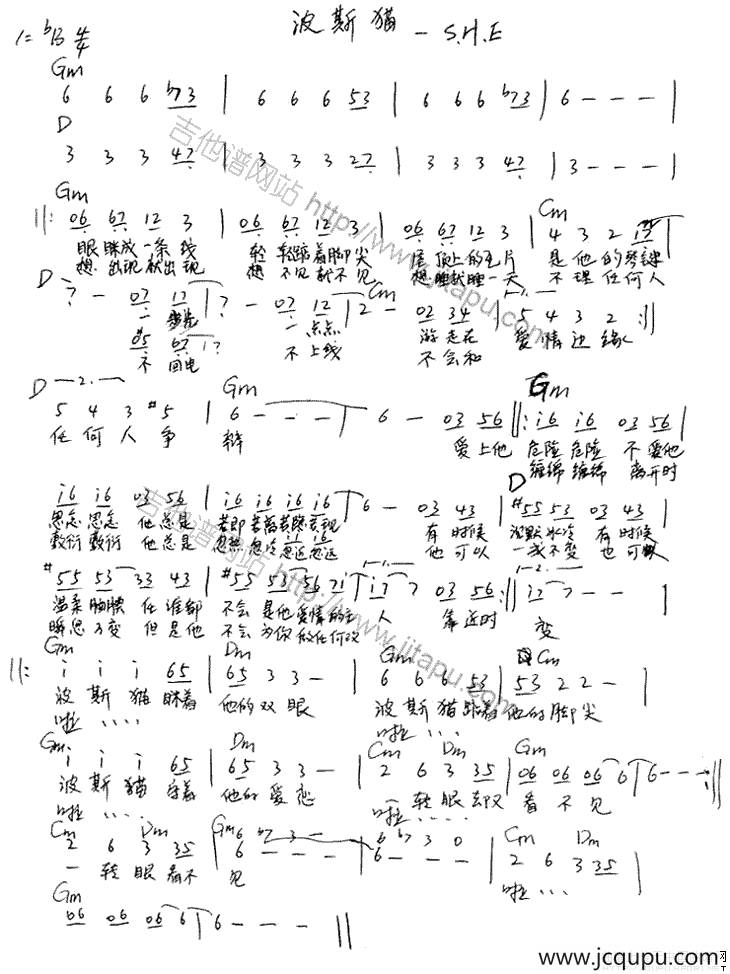 波斯猫 - S.H.E
1=ᵇB 4/4
Gm
6 6 6 b73 | 6 6 6 53 | 6 6 6 b73 | 6 - - - |
D
3 3 3 47 | 3 3 3 27 | 3 3 3 47 | 3 - - - |
Gm Cm
||: 06 67 12 3 | 06 67 12 3 | 06 67 12 3 | 4 3 2
眼眯成一条线 轻轻踮着脚尖 屋顶上的毛片 是他的
想出现就出现 想不见就不见 想睡就睡一天 不理任何人
D Cm
07 12 | 2 - 02 34 | 5 4 3 2 :||
一点点 游走在 爱情边缘
不回电 不上线 不会和
D 2.
5 4 3 #5 | 6 - - - | 6 - 03 56 ||: i6 i6 03 56 |
Gm Gm
任何人争辩 爱上他 危险危险 不爱他
缠绵缠绵 离开时
i6 i6 03 56 | i6 i6 i6 i6 | 6 - 03 43 | #55 53 03 43 |
D
思念思念 他总是 若即若离若隐若现 有时候 沉默冰冷 有时候
敷衍敷衍 他总是 忽热忽冷忽近忽远 他可以 一成不变 也可以
#55 53 33 43 | #55 53 56 7i | 03 56 :||
温柔腼腆 任谁都 不会是他爱情的主人 靠近时
瞬息万变 但是他 不会为你做任何改变
Gm Dm Gm Cm
||: i i i 65 | 65 3 3 - | 6 6 6 53 | 53 2 2 - |
波斯猫眯着 他的双眼 波斯猫踮着 他的脚尖
啦 .... 啦 ....
Gm Dm Cm Dm Gm
i i i 65 | 65 3 3 - | 2 6 3 35 | 06 06 06 6 | 6 - - - :||
波斯猫守着 他的爱恋 一转眼却又 看不见
啦 .... 啦 ....
Cm Dm Gm Cm Dm
2 6 3 35 | 6 - - - | 6 - - - | 2 6 3 35 |
6 b7 3 - 6 b7 3 0
一转眼看不见 啦 ...
Gm
06 06 06 6 | 6 - - - ||
吉他谱网站 http://www.jitapu.com
吉他谱网站 http://www.jitapu.com
www.jcqupu.com